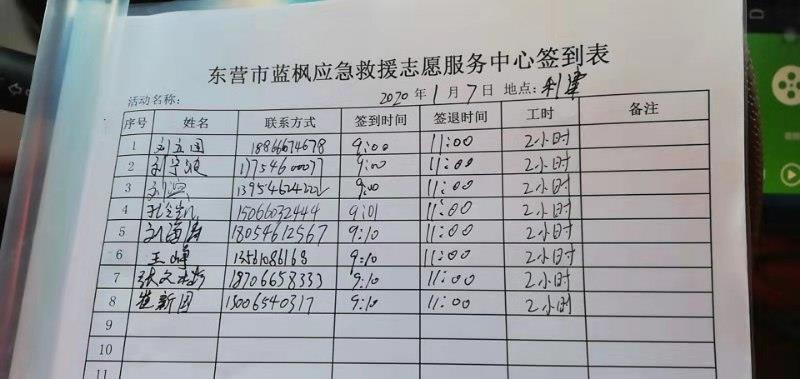 东营市蓝枫应急救援志愿服务中心签到表
活动名称: 2020年1月7日 地点: 利津
序号 姓名 联系方式 签到时间 签退时间 工时 备注
1 刘立国 18866674678 9:00 11:00 2小时
2 刘宁波 17754600077 9:00 11:00 2小时
3 刘 9:00 11:00 2小时
4 15066032444 9:01 11:00 2小时
5 刘海涛 18054612567 9:10 11:00 2小时
6 王峰 13561086168 9:10 11:00 2小时
7 张文 18706658333 9:10 11:00 2小时
8 崔新国 15006540317 9:10 11:00 2小时
9
10
11